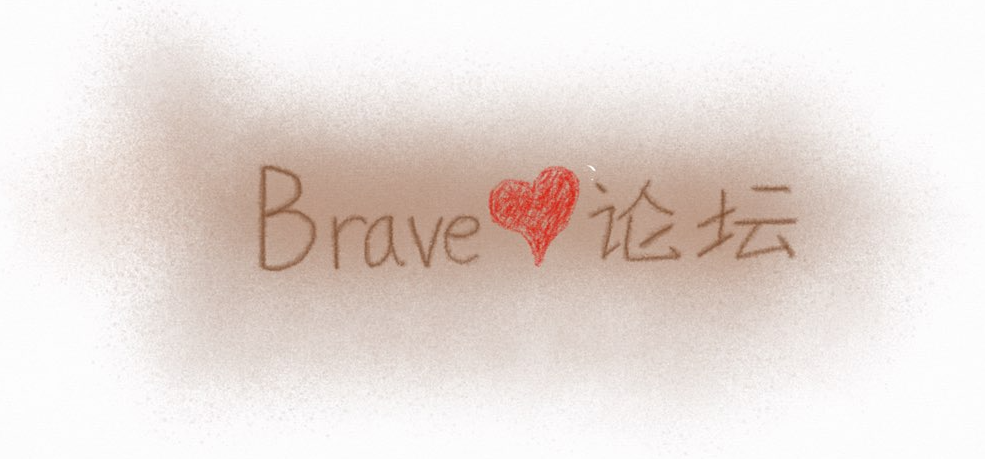 Brave❤论坛